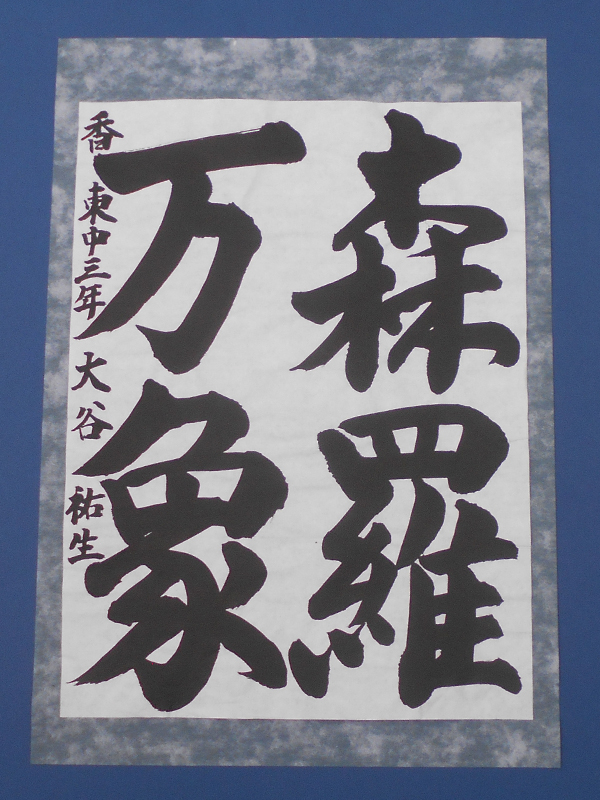 森羅
万象
香東中三年 大谷 祐生